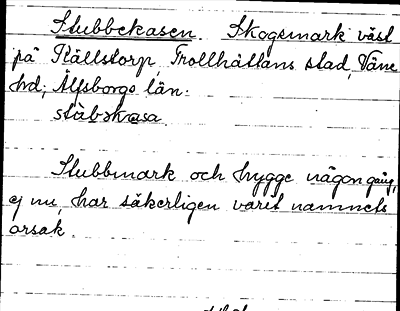 Stubbekasen. Skogsmark väst
på Källstorp, Trollhättans stad, Väne
hd; Älfsborgs län.
stùbəkasa.
Stubbmark och hygge någon gång,
ej nu, har säkerligen varit namnets
orsak.